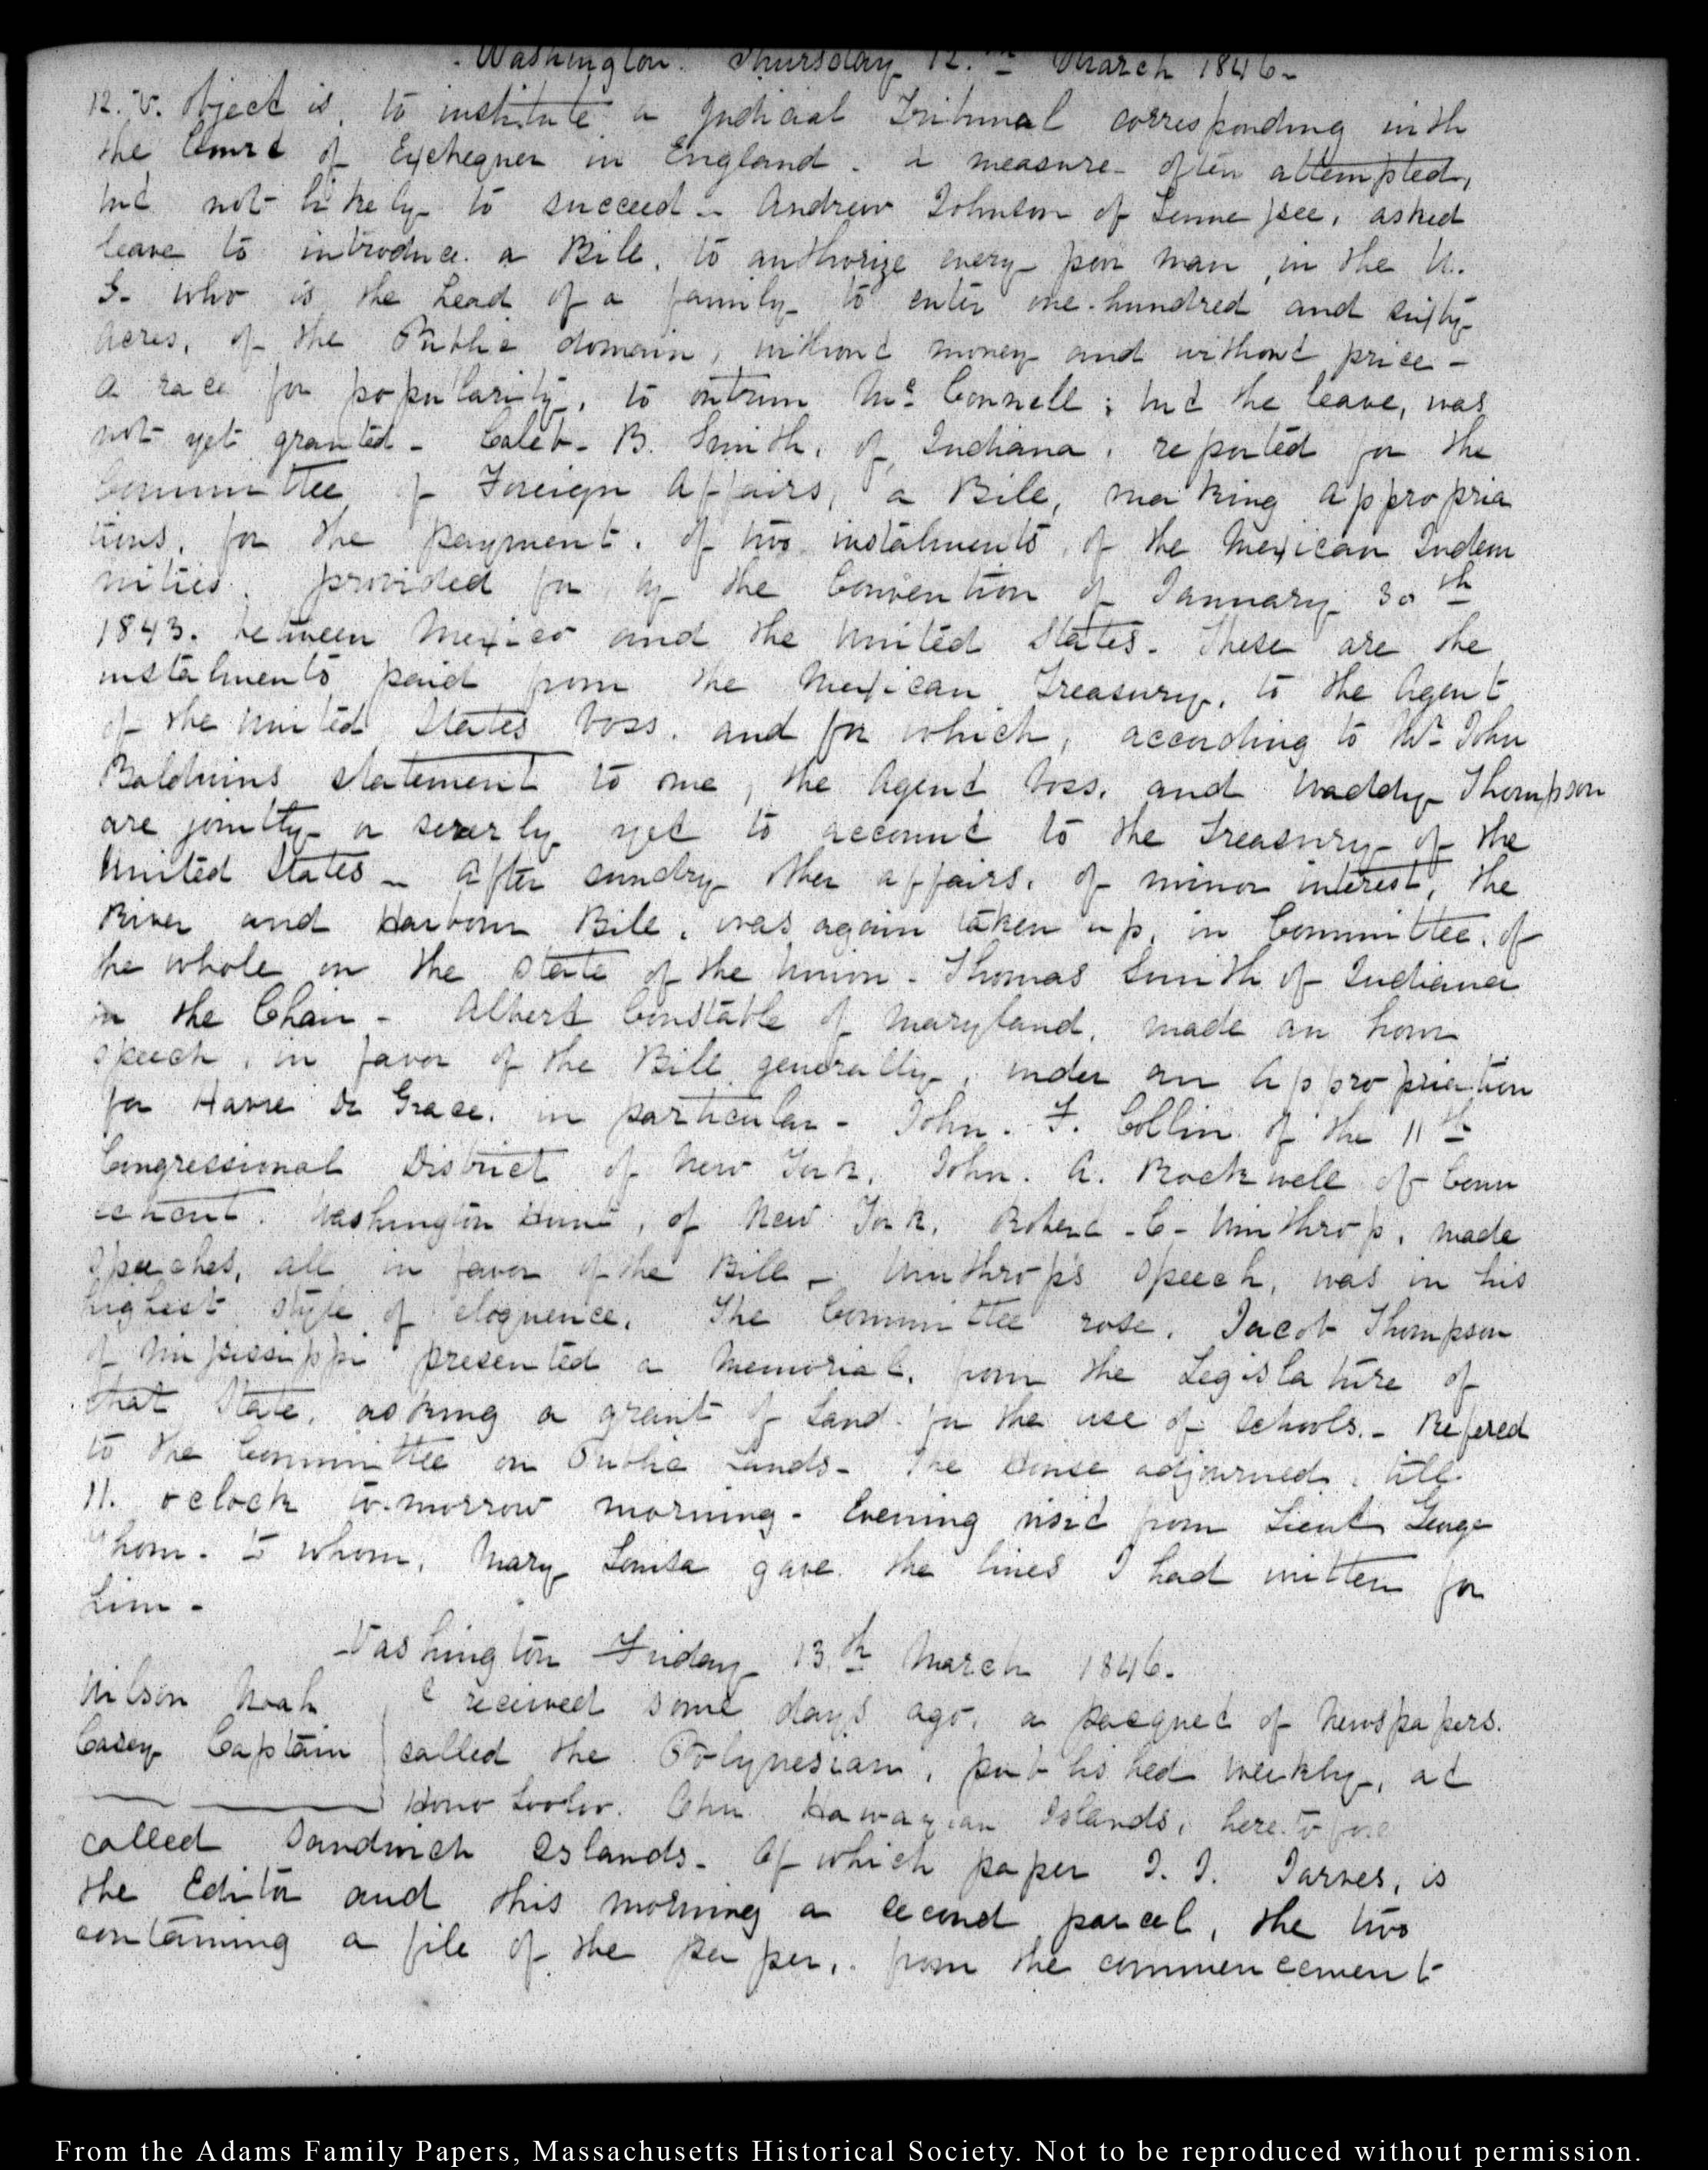 Washington. Thursday 12.th March 1846.
12. V. Object is, to institute a Judicial Tribunal corresponding with
the Court of Exchequer in England. a measure often attempted,
but not likely to succeed. Andrew Johnson of Tennessee, asked
leave to introduce a Bill, to authorize every poor man, in the U.
S. who is the head of a family to enter one hundred and sixty
acres, of the Public domain, without money and without price—
a race for popularity, to outrun McConnell; but the leave, was
not yet granted— Caleb B. Smith, of Indiana, reported for the
Committee of Foreign Affairs, a Bill, making appropria
tions, for the payment, of two instalments, of the Mexican Indem
nities. provided for, by the Convention of January 30th
1843. between Mexico and the United States. These are the
instalments paid from the Mexican Treasury, to the Agent
of the United States Voss. and for which, according to Mr. John
Baldwins statement to me, the Agent Voss. and Waddy Thompson
are jointly or severly yet to account to the Treasury of the
United States— After sundry other affairs, of minor interest, the
River and Harbour Bill, was again taken up, in Committee, of
the whole on the State of the Union. Thomas Smith of Indiana
in the Chair— Albert Constable of Maryland, made an hour
speech, in favor of the Bill generally, under an Appropriation
for Havre de Grace, in particular— John. F. Collin of the 11th
Congressional District of New York, John. A. Rockwell of Conn
ecticut. Washington Hunt, of New York, Robert C. Winthrop, made
speeches, all in favor of the Bill— Winthrops speech, was in his
highest style of eloquence. The Committee rose. Jacob Thompson
of Mississippi presented a Memorial, from the Legislature of
that State, asking a grant of Land for the use of Schools.— Refered
to the Committee on Public Lands— The House adjourned, till
11. oclock to-morrow morning— Evening visit from Lieut George
Thom. to whom, Mary Louisa gave the lines I had written for
him—
Washington Friday 13.th March 1846.
Wilson Noah
Casey Captain
I received some days ago, a pacquet of Newspapers.
called the Polynesian, published weekly, at
Hono Looloo. Ohu Hawayian Islands, heretofore
called Sandwich Islands— Of which paper J. J. Jarves, is
the Editor and this morning a second parcel, the two
containing a file of the paper, from the commencement
From the Adams Family Papers, Massachusetts Historical Society. Not to be reproduced without permission.